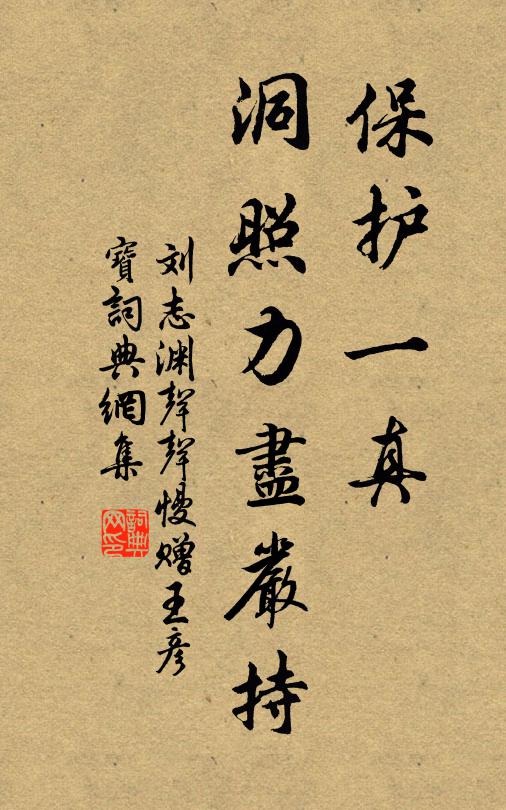 保护一真
洞照力盡嚴持
刘志渊聲聲慢赠王彦
寶詞典網集
詞典
网印